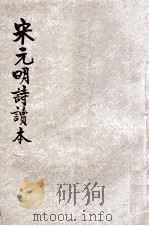 宋元明詩讀本
野狗
mtoou.info